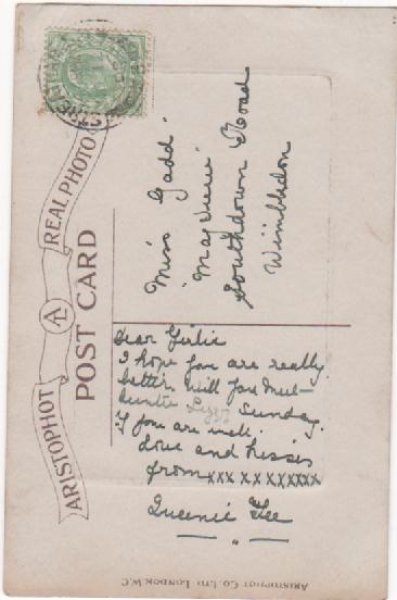 ARISTOPHOT A REAL PHOTO
POST CARD
Miss Gadd
"May View"
Southdown Road
Wimbledon
Dear Girlie
I hope you are really
better will you meet
Auntie Lizzy Sunday.
If you are well.
Love and kisses
from xxx xx xxxxxxx
Queenie Gee
ARISTOPHOT CO. LTD LONDON. W.C